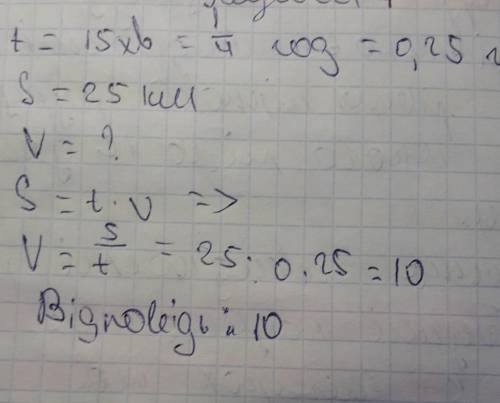 t = 15 хв = 1/4 год = 0,25 г
S = 25 км
V = ?
S = t · v =>
V = S/t = 25 : 0.25 = 10
Відповідь: 10